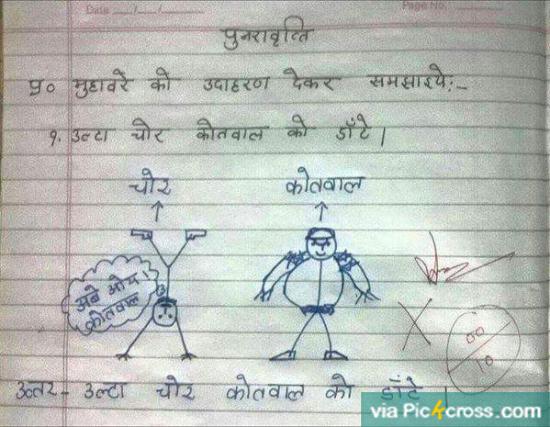 Date ___/___/___ Page No.
पुनरावृत्ति
प्र० मुहावरे को उदाहरण देकर समझाइये:-
१. उल्टा चोर कोतवाल को डाँटे |
चोर कोतवाल
अबे ओय
कोतवाल
00
10
उत्तर- उल्टा चोर कोतवाल को डाँटे |
via Pic4cross.com